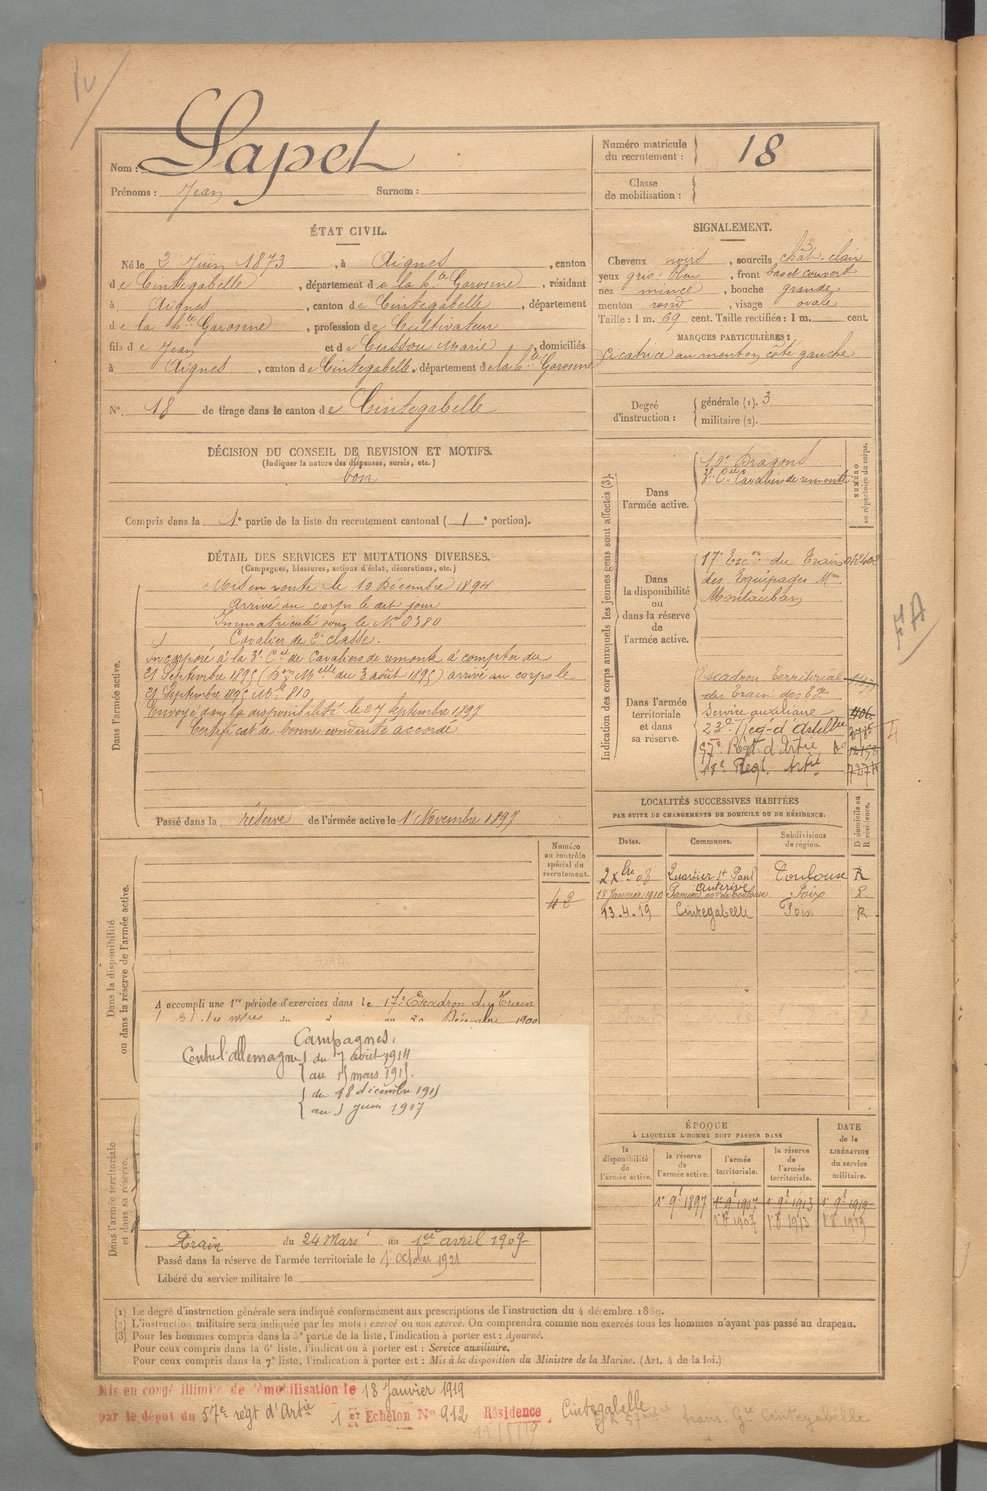 Nom : Lapet
Prénoms : Jean Surnom :
Numéro matricule du recrutement : 18
Classe de mobilisation :
ÉTAT CIVIL.
Né le 2 Juin 1873, à Aignes, canton
de Cintegabelle, département de la Hte Garonne, résidant
à Aignes, canton de Cintegabelle, département
de la Hte Garonne, profession de Cultivateur
fils de Jean et de Cussou Marie, domiciliés
à Aignes, canton de Cintegabelle, département de la Hte Garonne
N°. 18 de tirage dans le canton de Cintegabelle
SIGNALEMENT.
Cheveux noirs, sourcils chât. clair
yeux gris-bleu, front bas et couvert
nez mince, bouche grande
menton rond, visage ovale
Taille : 1 m. 69 cent. Taille rectifiée : 1 m. cent.
MARQUES PARTICULIÈRES :
Cicatrice au menton côté gauche
Degré d'instruction : générale (1). 3
militaire (2).
DÉCISION DU CONSEIL DE REVISION ET MOTIFS.
(Indiquer la nature des dispenses, sursis, etc.)
bon
Compris dans la 1e partie de la liste du recrutement cantonal ( 1 e portion).
DÉTAIL DES SERVICES ET MUTATIONS DIVERSES.
(Campagnes, blessures, actions d'éclat, décorations, etc.)
Dans l'armée active.
Mis en route le 10 Décembre 1894
Arrivé au corps le dit jour
Immatriculé sous le N° 3380
Cavalier de 2e classe.
incorporé à la 3e Cie de Cavaliers de remonte à compter du
21 Septembre 1895 (Don Melle du 3 août 1895) arrivé au corps le
21 Septembre 1895 Mle 810
Envoyé dans la disponibilité le 27 septembre 1897
Certificat de bonne conduite accordé
Passé dans la réserve de l'armée active le 1er Novembre 1897
Indication des corps auxquels les jeunes gens sont affectés (3).
NUMÉRO au répertoire du corps.
Dans l'armée active.
10e Dragons
3e Cie Cavaliers de remonte
Dans la disponibilité ou dans la réserve de l'armée active.
17e Escon du Train
des Equipages Mres
Montauban
Dans l'armée territoriale et dans sa réserve.
Escadron Territorial
du Train des Eqes
Service auxiliaire
23e Rég-d'Artillie
57e Régt d'Artie
18e Régt Artie
FA
LOCALITÉS SUCCESSIVES HABITÉES
PAR SUITE DE CHANGEMENTS DE DOMICILE OU DE RÉSIDENCE.
Dates. Communes. Subdivisions de région. D domicile ou R résidence.
2 Xbre 07 Quartier St Paul Toulouse R
18 Janvier 1910 Auterive Foix R
13.4.19 Cintegabelle Foix R
Numéro au contrôle spécial du recrutement.
42
Dans la disponibilité ou dans la réserve de l'armée active.
A accompli une 1re période d'exercices dans le 17e Escadron du Train
Campagnes.
Contre l'allemagne du 7 août 1914
au 15 mars 1915.
du 18 décembre 1915
au 5 juin 1907
Dans l'armée territoriale et dans sa réserve.
Train du 24 Mars au 1er avril 1909
Passé dans la réserve de l'armée territoriale le 1 octobre 1921
Libéré du service militaire le
ÉPOQUE
À LAQUELLE L'HOMME DOIT PASSER DANS
DATE de la LIBÉRATION du service militaire.
la disponibilité de l'armée active. la réserve de l'armée active. l'armée territoriale. la réserve de l'armée territoriale.
1er 9bre 1897 1er 9bre 1907 1er 9bre 1913 1er 9bre 1919
(1) Le degré d'instruction générale sera indiqué conformément aux prescriptions de l'instruction du 4 décembre 1889.
(2) L'instruction militaire sera indiquée par les mots : exercé ou non exercé. On comprendra comme non exercés tous les hommes n'ayant pas passé au drapeau.
(3) Pour les hommes compris dans la 5e partie de la liste, l'indication à porter est : Ajourné.
Pour ceux compris dans la 6e liste, l'indication à porter est : Service auxiliaire.
Pour ceux compris dans la 7e liste, l'indication à porter est : Mis à la disposition du Ministre de la Marine. (Art. 4 de la loi.)
Mis en congé illimité de démobilisation le 18 Janvier 1919
par le dépôt du 57e régt d'Artie 1er Echelon N° 912 Résidence, Cintegabelle